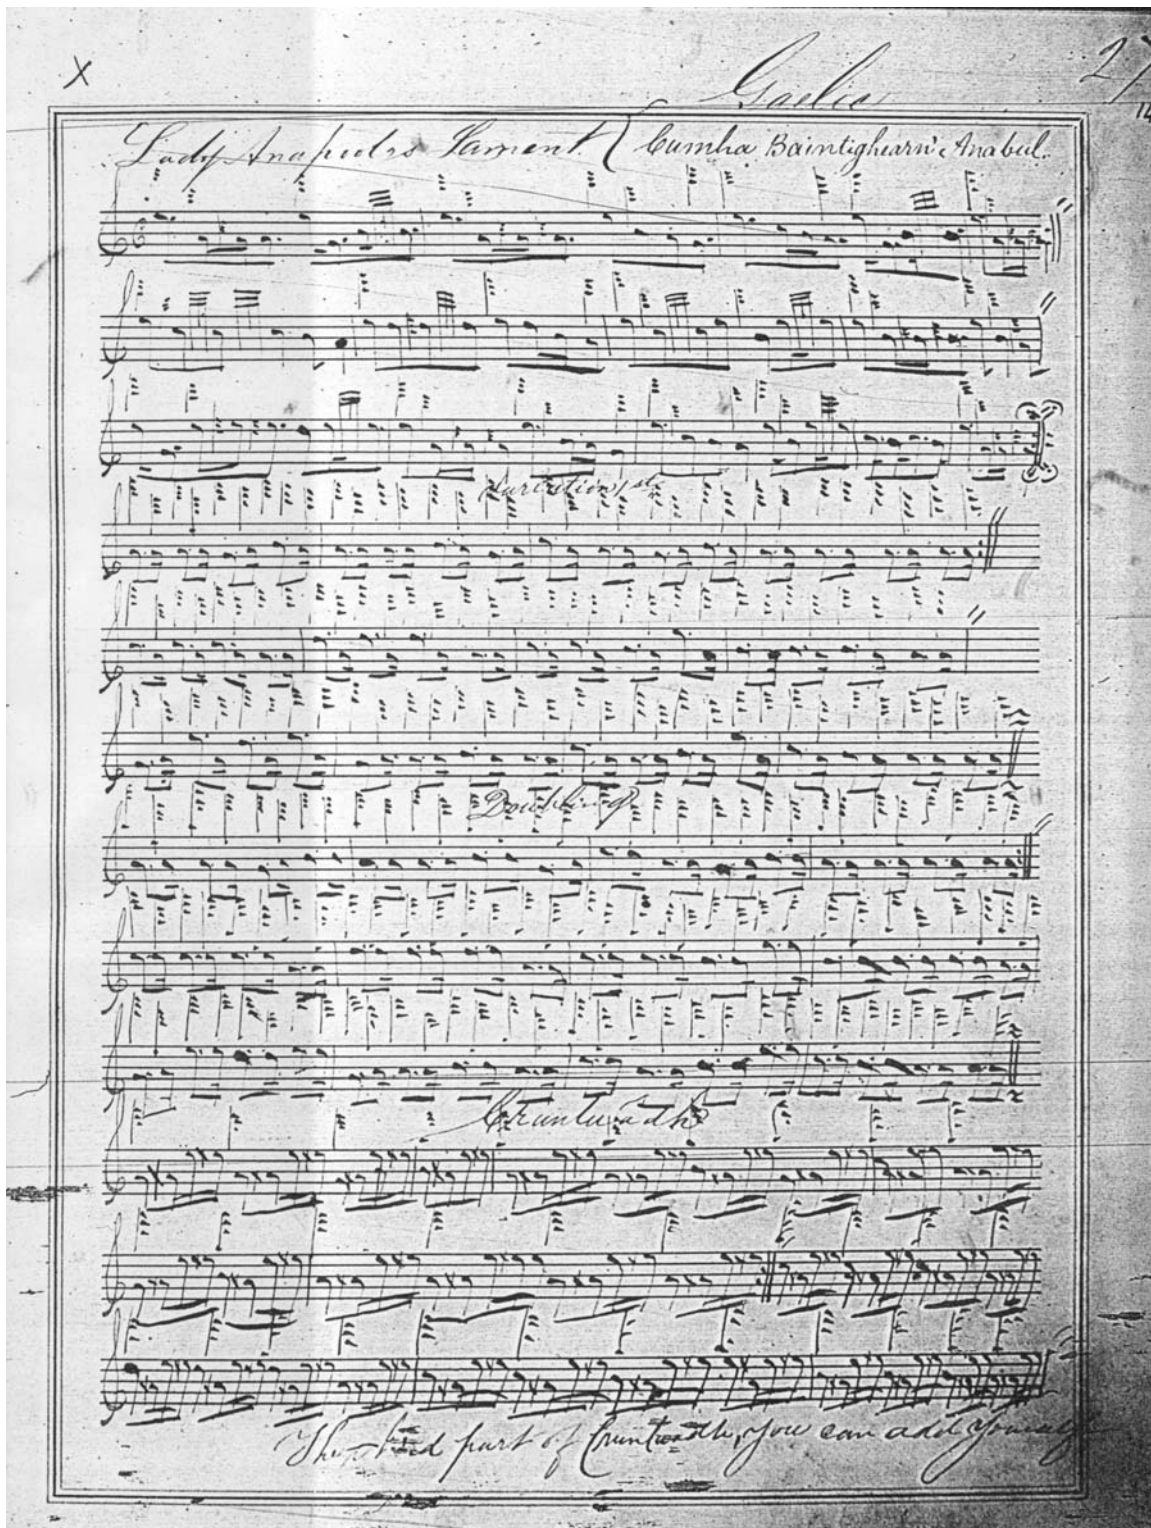 X
Gaelic
27
14
Lady Anapools Lament. { Cumha Baintighearn' Anabul.
Variation 1st
Doubling
Crunluadh
The third part of Crunluadh, you can add yourself